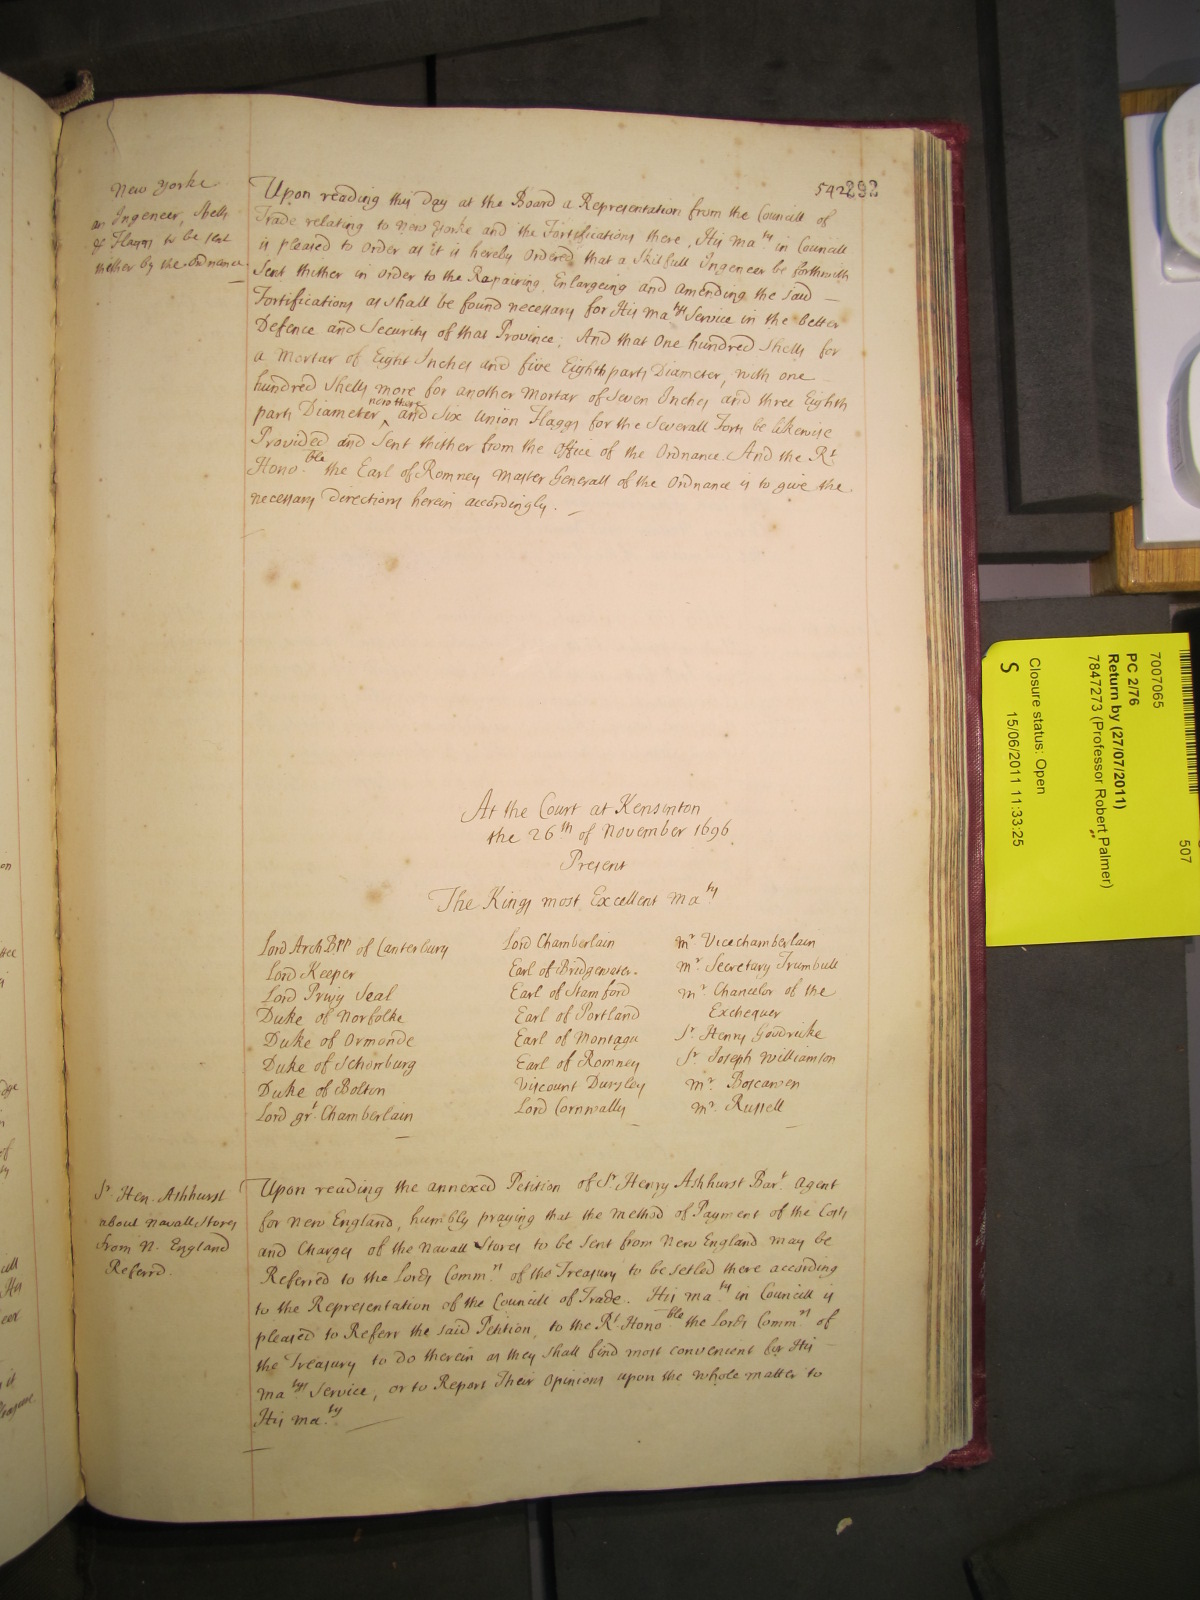 542 292
New Yorke
an Ingeneer, Shells
& Flaggs to be sent
thither by the Ordnance
Upon reading this Day at the Board a Representation from the Councill of
Trade relating to New Yorke and the Fortifications there, His Ma.ty in Councill
is pleased to order as it is hereby ordered that a Skilfull Ingeneer be forthwith
sent thither in order to the Repairing, Enlargeing and amending the said
Fortifications as shall be found necessary for His Ma.tys Service in the better
Defence and Security of that Province; And that One hundred Shells for
a Mortar of Eight Inches and five Eighth parts Diameter, with one
hundred Shells more for another Mortar of Seven Inches and three Eighth
parts Diameter now there and Six Union Flaggs for the Severall Forts be likewise
Provided and Sent thither from the Office of the Ordnance. And the R.t
Hono.ble the Earl of Romney Master Generall of the Ordnance is to give the
necessary Directions herein accordingly.
At the Court at Kensinton
the 26th of November 1696
Present
The Kings most Excellent Ma.ty
Lord Arch.Bpp of Canterbury
Lord Keeper
Lord Privy Seal
Duke of Norfolke
Duke of Ormonde
Duke of Schomburg
Duke of Bolton
Lord gr.t Chamberlain
Lord Chamberlain
Earl of Bridgewater
Earl of Stamford
Earl of Portland
Earl of Montagu
Earl of Romney
Viscount Dursley
Lord Cornwallys
Mr. Vicechamberlain
Mr. Secretary Trumbull
Mr. Chancelor of the
Exchequer
Sr. Henry Goodricke
Sr. Joseph Williamson
Mr. Boscawen
Mr. Russell
Sr. Hen. Ashhurst
about Navall Stores
from N. England
Referrd.
Upon reading the annexed Petition of Sr. Henry Ashhurst Bar.t Agent
for New England, humbly praying that the Method of Payment of the Costs
and Charges of the Navall Stores to be sent from New England may be
Referred to the Lords Comm.rs of the Treasury to be setled there according
to the Representation of the Councill of Trade. His Ma.ty in Councill is
pleased to Referr the said Petition, to the R.t Hono.ble the Lords Comm.rs of
the Treasury to do therein as they shall find most convenient for His
Ma.tys Service, or to Report Their Opinions upon the whole matter to
His Ma.ty
7007065
507
PC 2/76
Return by (27/07/2011)
7847273 (Professor Robert Palmer)
Closure status: Open
S 15/06/2011 11:33:25